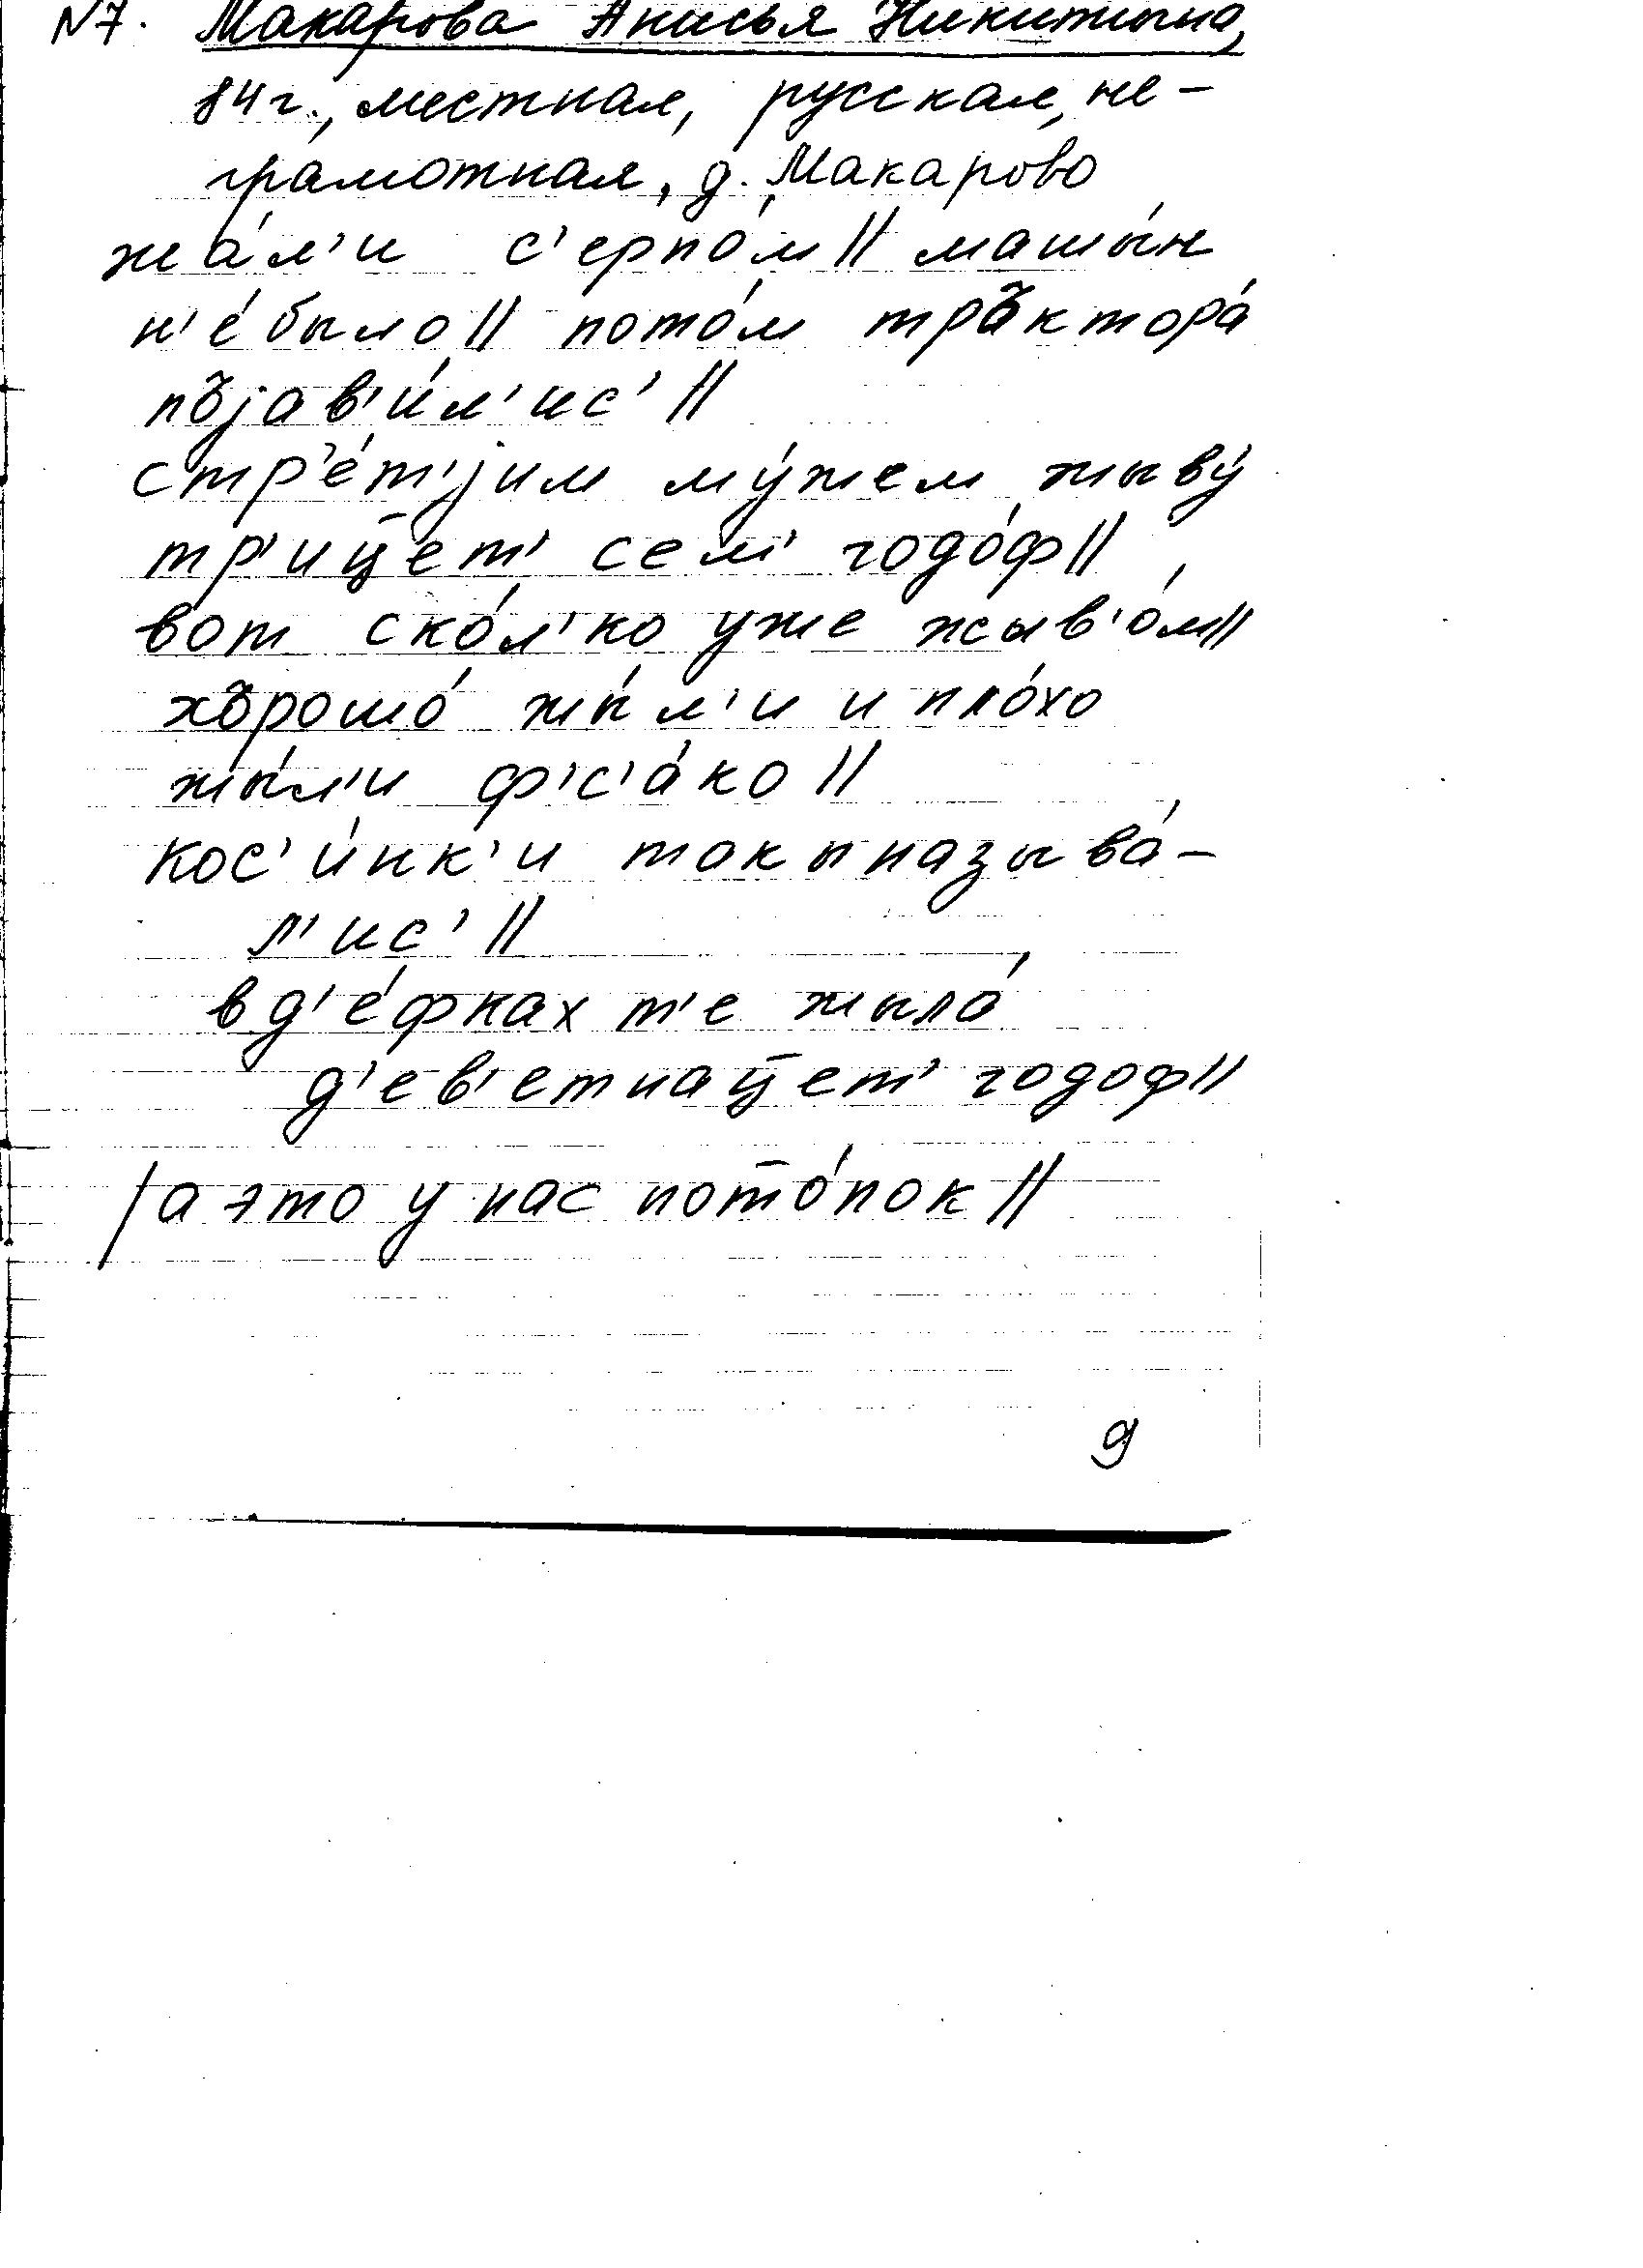 N7. Макарова Анисья Никитична,
84 г., местная, русская, не-
грамотная, д. Макарово
жа́л'и с'ерпо́м || машы́н
н'е́было || пото́м тръктора́
пъjав'и́л'ис' ||
стр'е́т'jим му́жем жыву́
тр'иц̄ет' сем' годо́ф ||
вот ско́л'ко уже жыв'о́м ||
хърошо́ жы́л'и и пло́хо
жы́л'и ф'с'а́ко ||
кос'и́нк'и токы называ́-
л'ис' ||
в д'е́фках т'е жыла́
д'ев'етнац̄ет' годоф ||
/а это у нас пот̄о́пок ||
9